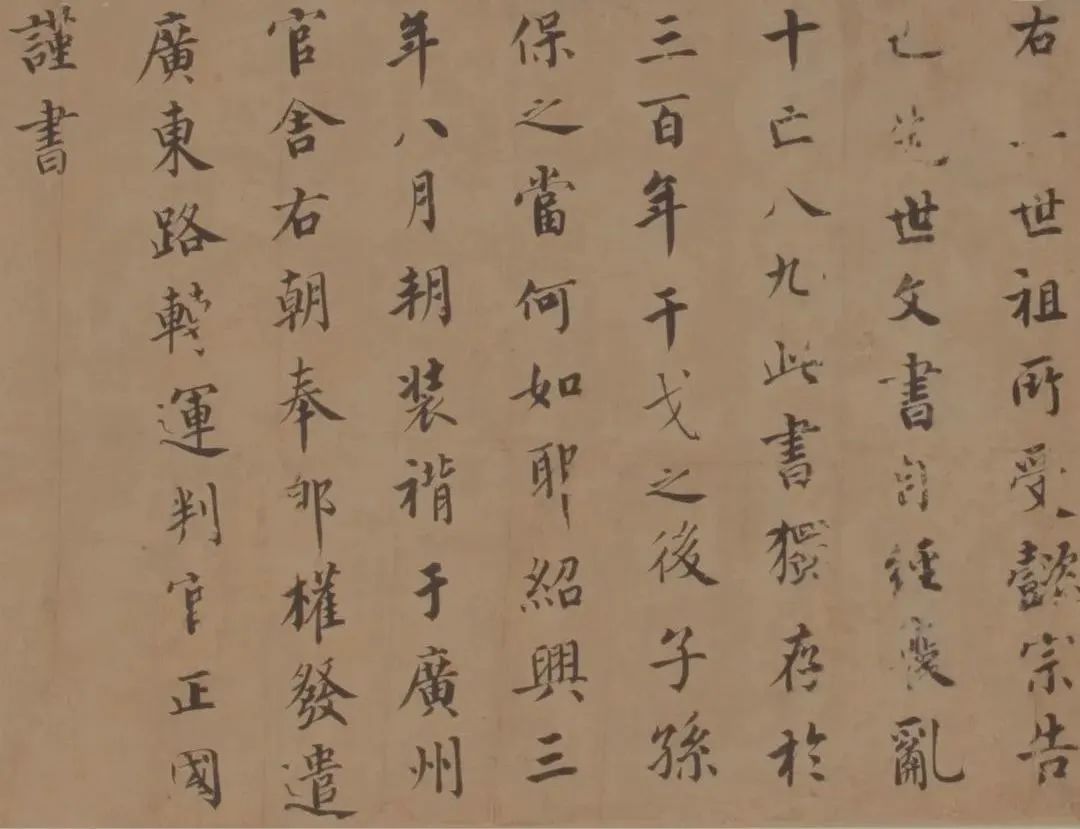 右世祖所受懿宗告
先世文書自經喪亂
十亡八九此書獨存於
三百年干戈之後子孫
保之當何如耶紹興三
年八月朔裝褙于廣州
官舍右朝奉郎權發遣
廣東路轉運判官正國
謹書